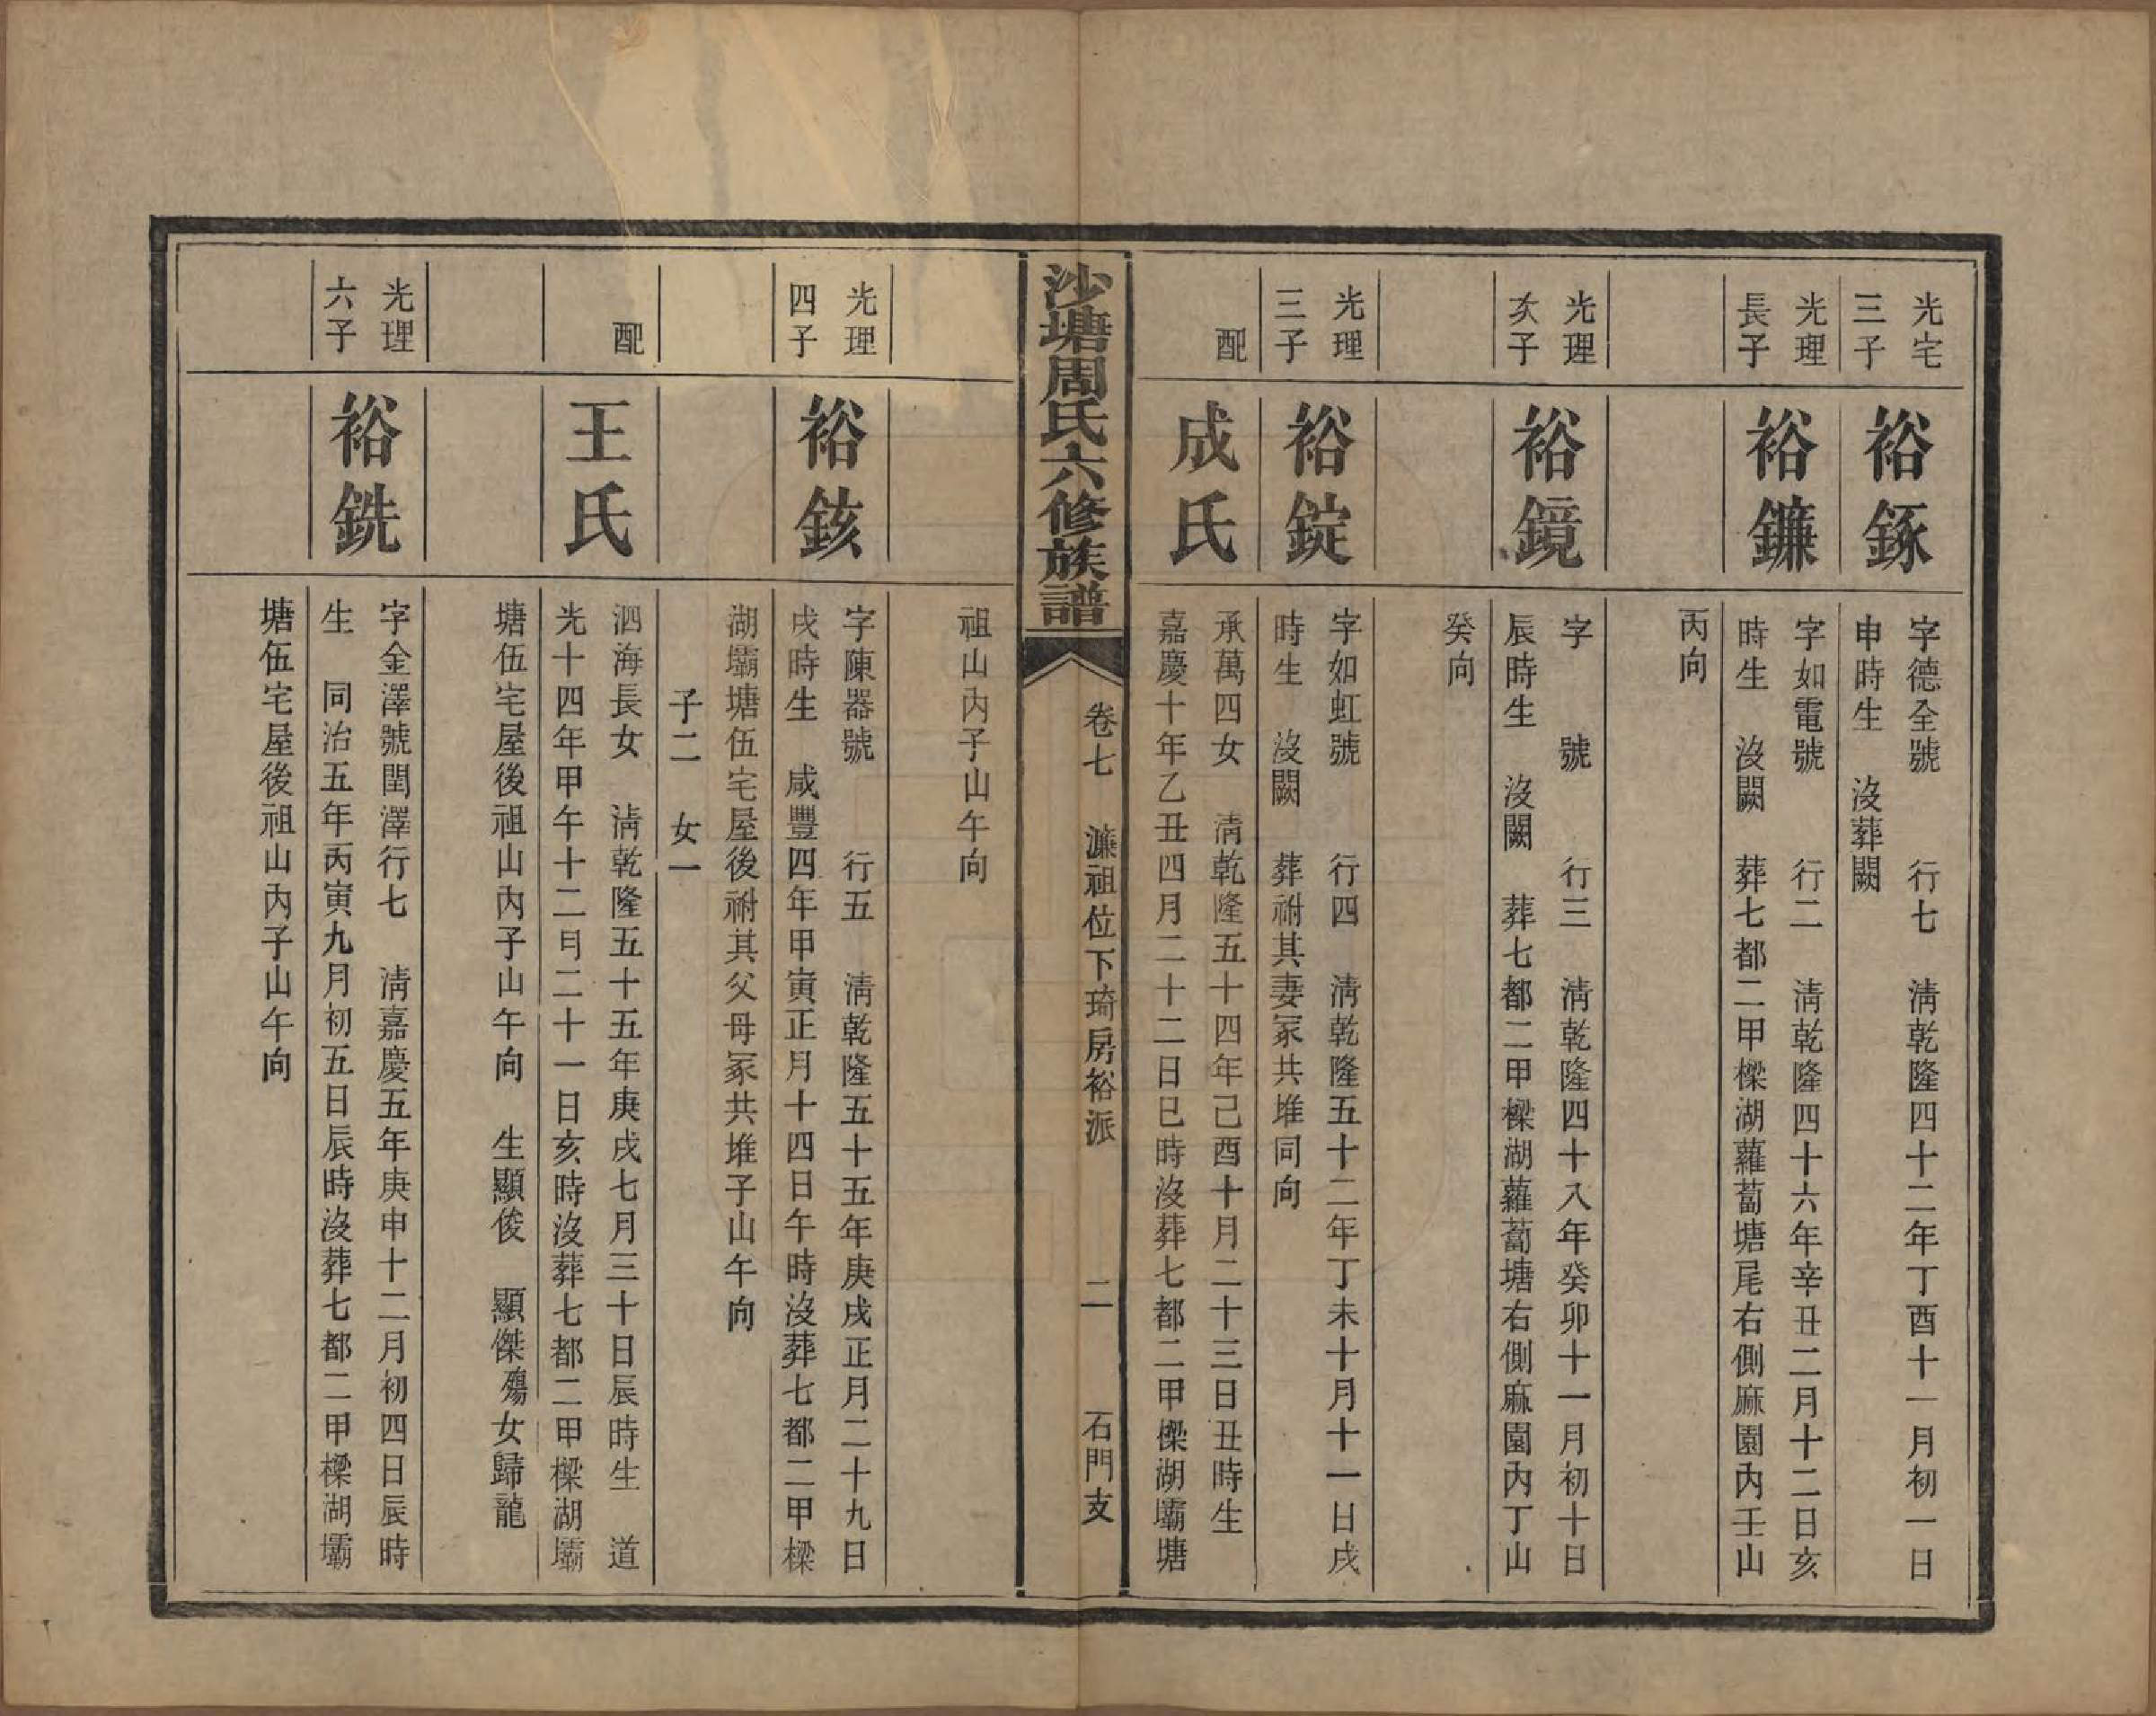 光宅
三子
裕鋑
字德全號　　行七　淸乾隆四十二年丁酉十一月初一日
申時生　沒葬闕
光理
長子
裕鐮
字如電號　　行二　淸乾隆四十六年辛丑二月十二日亥
時生　沒闕　葬七都二甲樑湖蘿蔔塘尾右側麻園內壬山
丙向
光理
次子
裕鏡
字　　號　　行三　淸乾隆四十八年癸卯十一月初十日
辰時生　沒闕　葬七都二甲樑湖蘿蔔塘右側麻園內丁山
癸向
光理
三子
裕錠
字如虹號　　行四　淸乾隆五十二年丁未十月十一日戌
時生　沒闕　葬祔其妻冢共堆同向
配
成氏
承萬四女　淸乾隆五十四年己酉十月二十三日丑時生
嘉慶十年乙丑四月二十二日巳時沒葬七都二甲樑湖壩塘
沙塘周氏六修族譜
卷七　濂祖位下琦房裕派　二　石門支
祖山內子山午向
光理
四子
裕鋑
字陳器號　　行五　淸乾隆五十五年庚戌正月二十九日
戌時生　咸豐四年甲寅正月十四日午時沒葬七都二甲樑
湖壩塘伍宅屋後祔其父母冢共堆子山午向
子二　女一
配
王氏
泗海長女　淸乾隆五十五年庚戌七月三十日辰時生　道
光十四年甲午十二月二十一日亥時沒葬七都二甲樑湖壩
塘伍宅屋後祖山內子山午向　生顯俊　顯傑殤女歸龍
光理
六子
裕銑
字金澤號閏澤行七　淸嘉慶五年庚申十二月初四日辰時
生　同治五年丙寅九月初五日辰時沒葬七都二甲樑湖壩
塘伍宅屋後祖山內子山午向